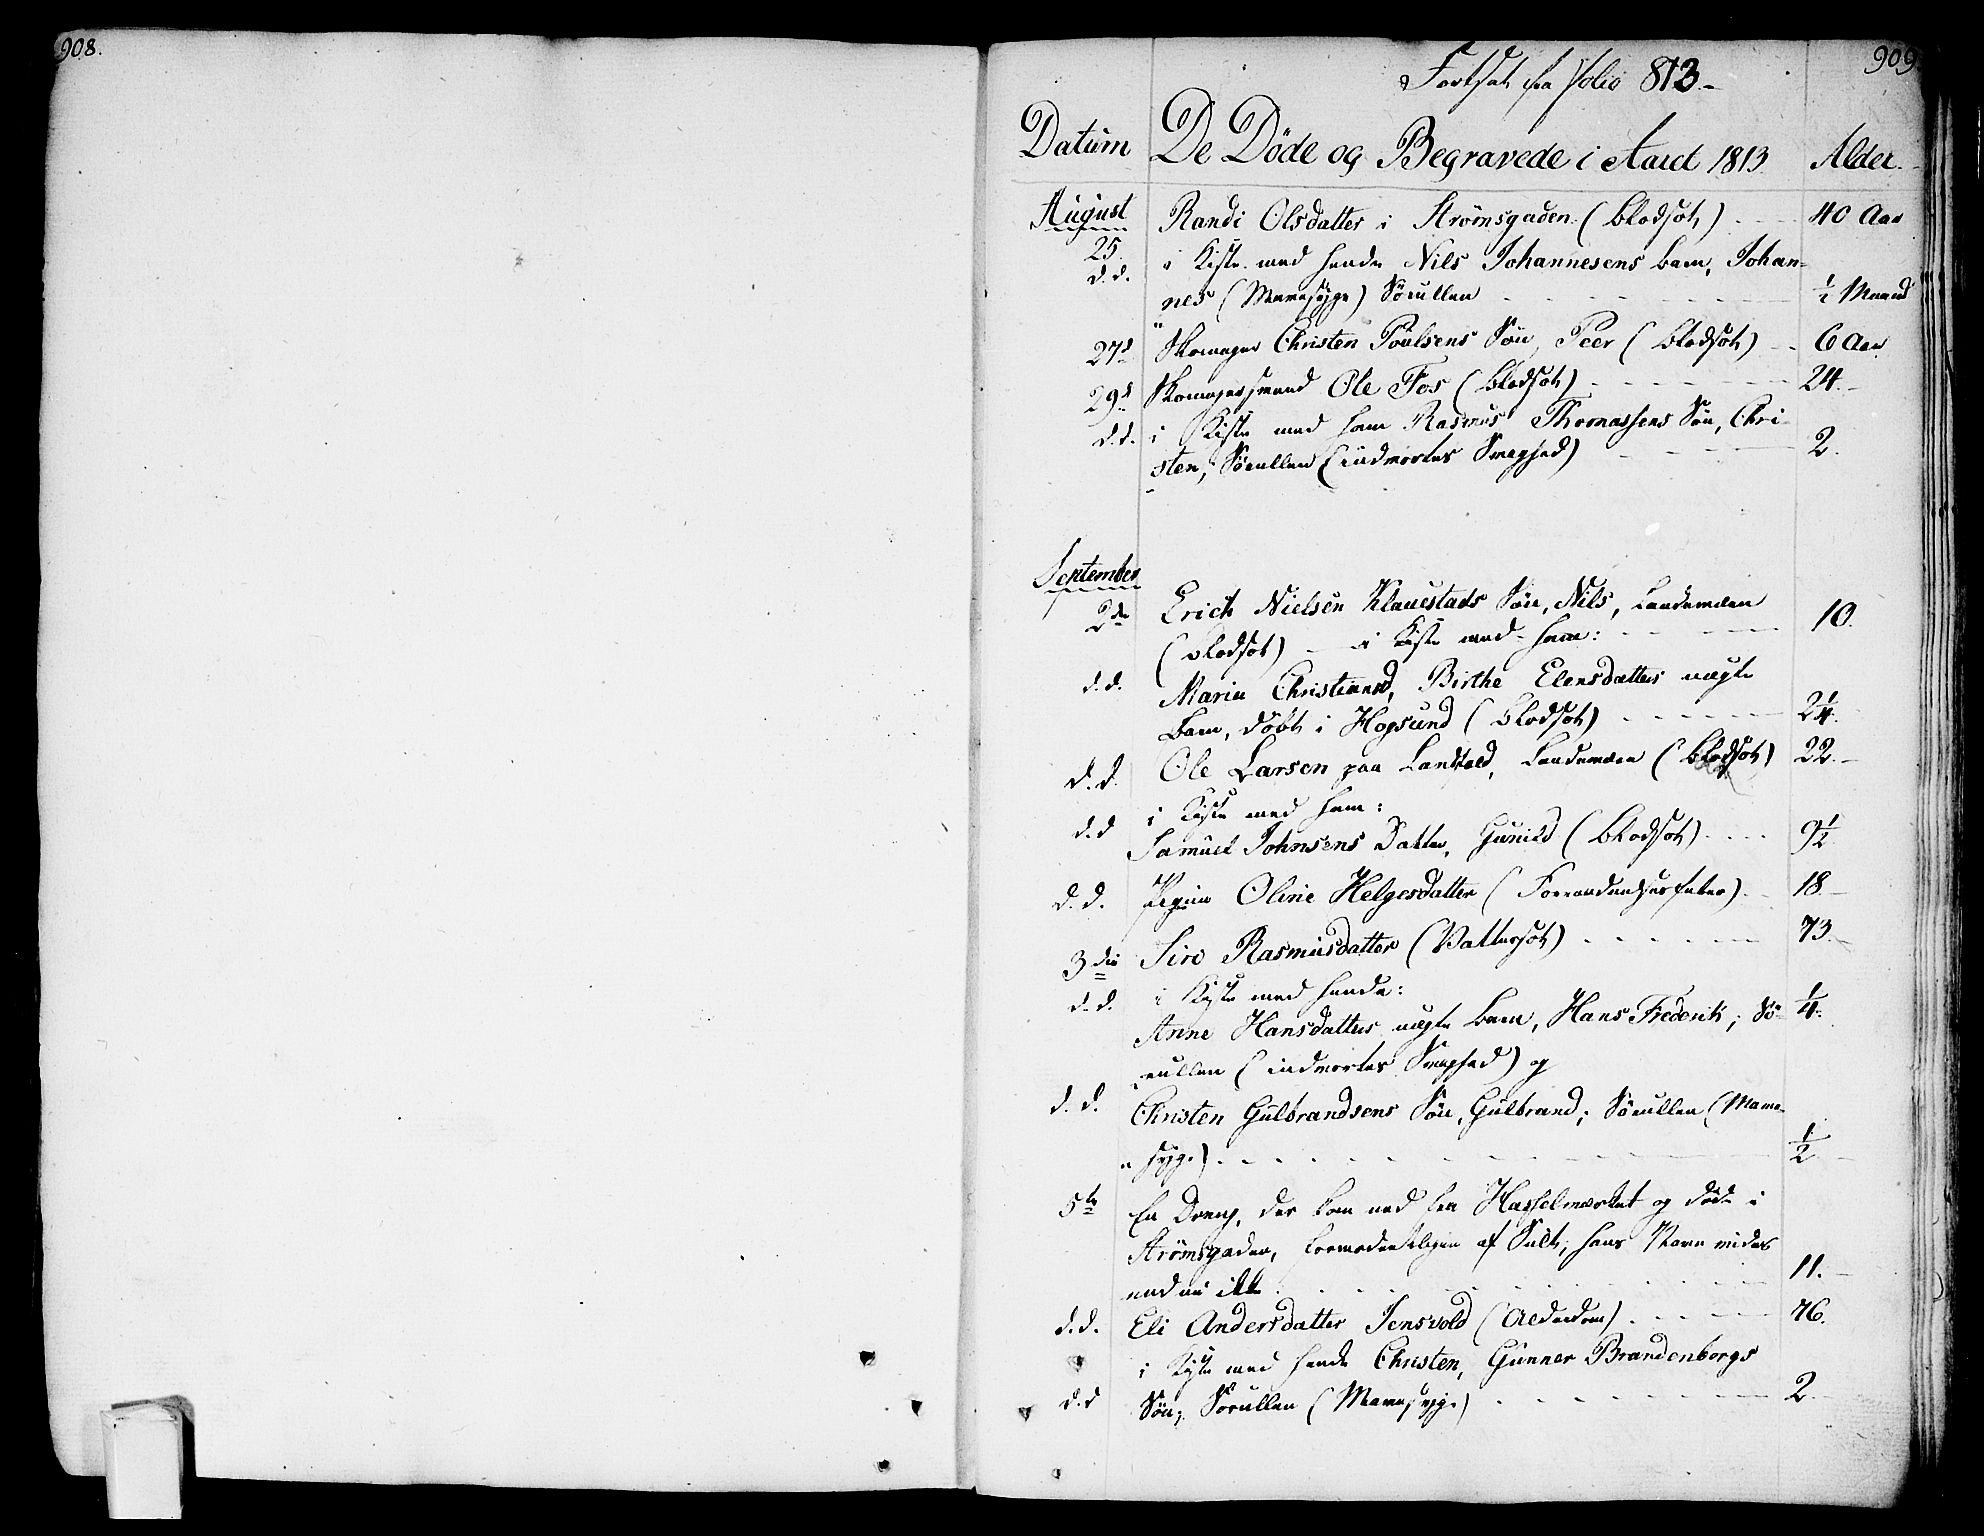 908.
909
Fortsat fra Folio 813.-
Datum De Döde og Begravede i Aaret 1813 Alder.
August Randi Olsdatter i Strömsgaden (Blodsot) 40 Aar
25.
d.d. i Kiste med hende Nils Johannesens Barn, Johan=
nes (Mavesyge) Söerullen ½ Maaned
27d Skomager Christen Poulsens Sön, Peer (Blodsot) 6 Aar
29d Skomagersvend Ole Fos (Blodsot) 24.
d.d. i Kiste med ham Rasmus Thomassens Sön, Chri-
sten, Söerullen (indvortes Svaghed) 2.
September
2den Erich Nielsen Klauestads Sön, Nils, Landeværn 10.
(Blodsot) i Kiste med ham:
d.d. Maria Christiana, Birthe Elensdatters uægte
Barn, döbt i Hogsund (Blodsot) 2¼.
d.d. Ole Larsen paa Landfald, Landeværn (Blodsot) 22.
d.d i Kiste med ham:
Samuel Johnsens Datter, Gunild (Blodsot) 9½
d.d. Pigen Oline Helgesdatter (Forraadnelsesfeber) 18
3die Siri Rasmusdatter (Vattersot) 73
d.d. i Kiste med hende:
Anne Hansdatters uægte Barn, Hans Frederik; Sö- ¼.
erullen (indvortes Svaghed) og
d.d. Christen Gulbrandsens Sön, Gulbrand; Söerullen (Mave-
syge) ½
5te En Dreng, der kom ned fra Hasselværket og döde i
Strömsgaden, formodentligen af Sult; hans Navn vides
end nu ikke 11.
d.d. Eli Andersdatter Jensvold (Alderdom) 76.
i Kiste med hende Christen, Gunner Brandenborgs
d.d Sön; Söerullen (Mavesyge) 2